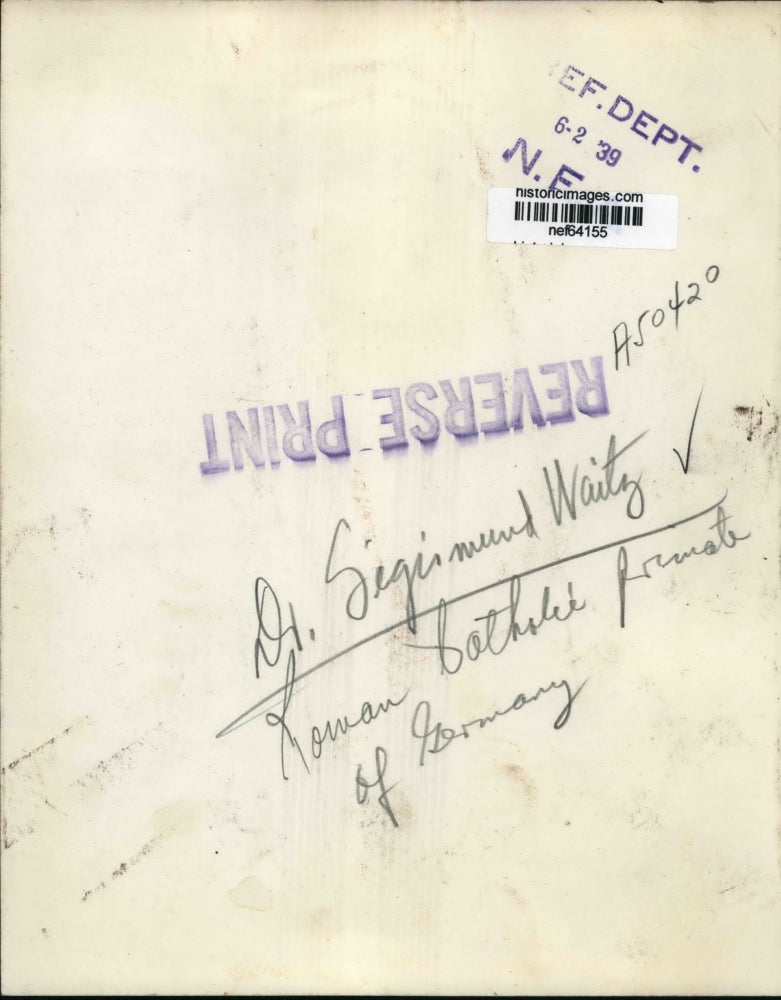 EF. DEPT.
6-2 '39
N. E
historicimages.com
nef64155
A50420
REVERSE PRINT
Dr. Sigismund Waitz
Roman Catholic Primate
of Germany